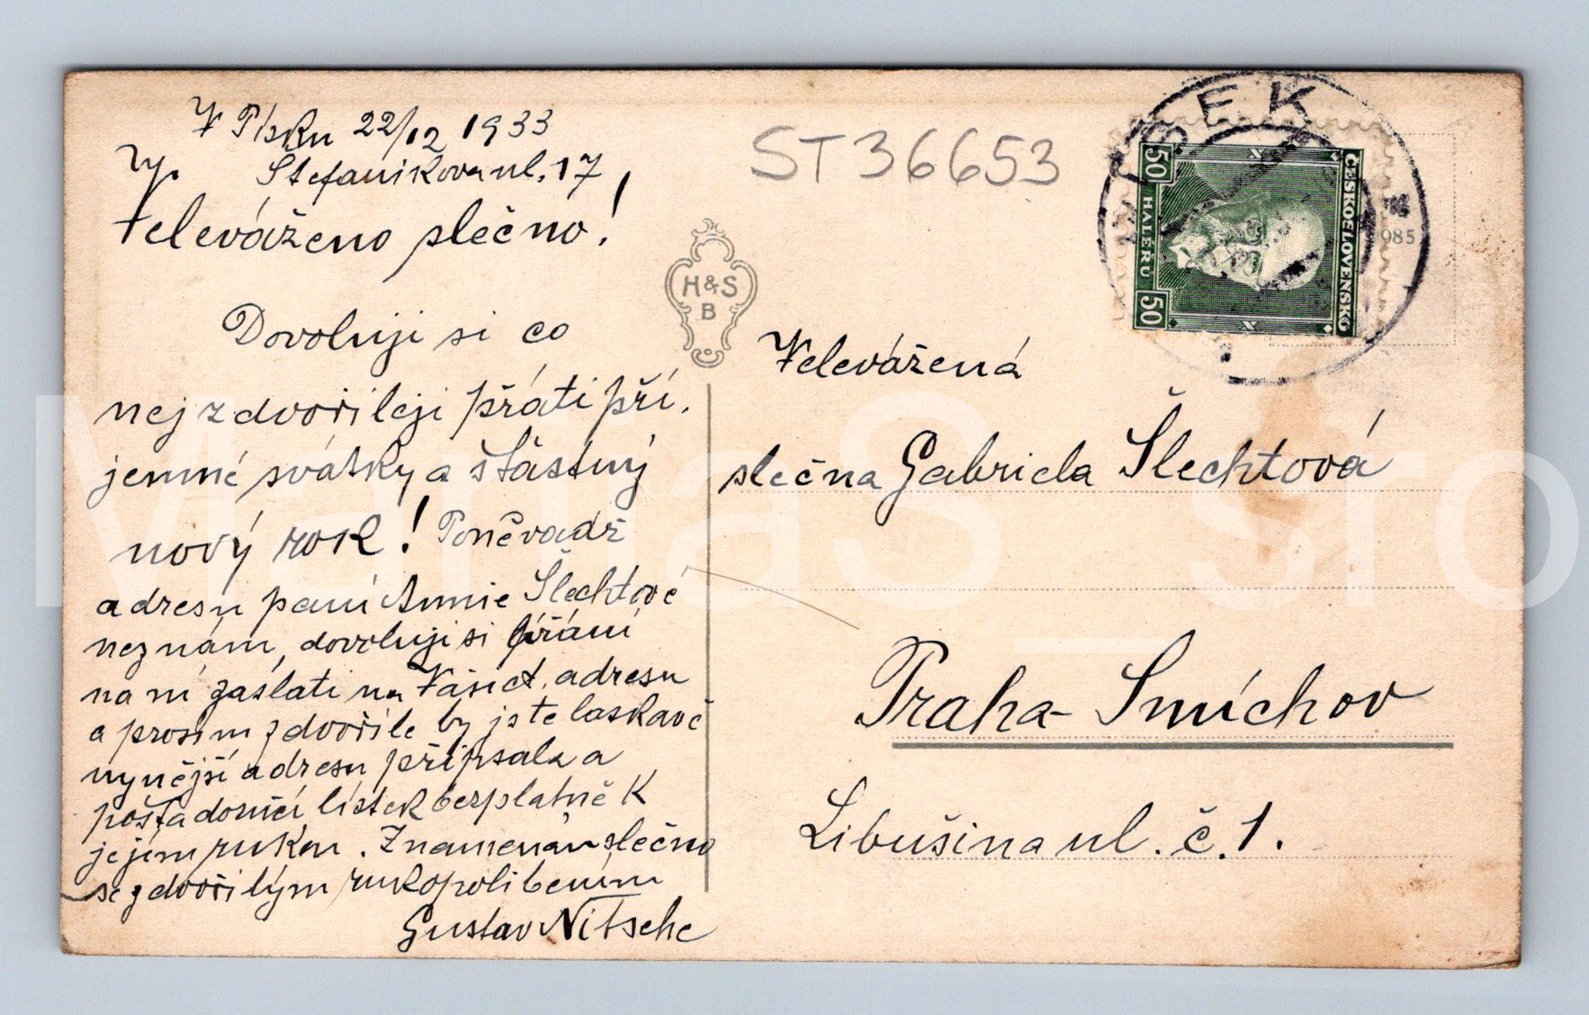 V Písku 22/12 1933
Štefanikova ul. 17
Velevážená slečno!
Dovoluji si co
nejzdvořileji přáti pří.
jemné svátky a šťastný
nový rok! Poněvadž
adresu paní Annie Šlechtové
neznám, dovoluji si přání
na ní zaslati na Vaší ct. adresu
a prosím zdvořile by jste laskavě
nynější adresu připsala a
pošta doručí lístek bezplatně k
jejím rukou. Znamenám slečno
se zdvořilým rukopolibením
Gustav Nitsche
H&S
B
ST36653
PÍSEK
ČESKOSLOVENSKO
50 HALÉŘŮ 50
985
Velevážená
slečna Gabriela Šlechtová
Praha-Smíchov
Libušina ul. č. 1.
MaTaS_sro